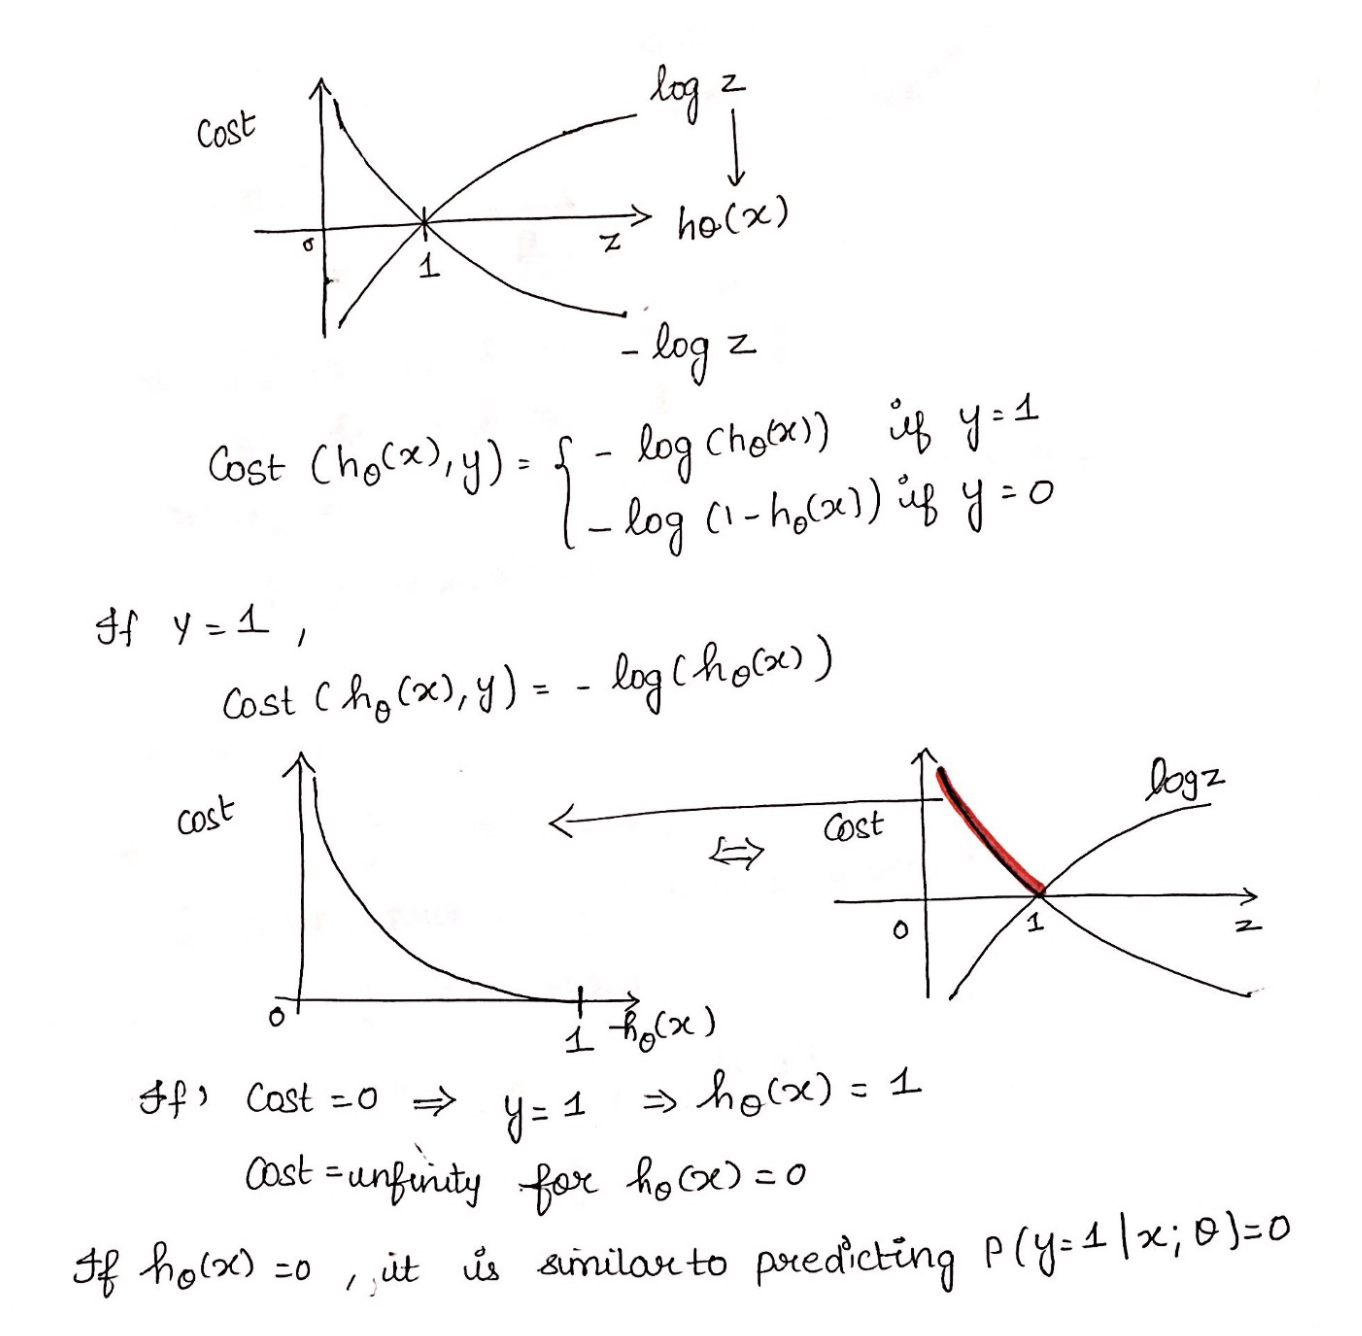 log z
Cost
hθ(x)
0
z
1
- log z
Cost (hθ(x), y) = { - log (hθ(x)) if y = 1
- log (1 - hθ(x)) if y = 0
If y = 1 ,
Cost (hθ(x), y) = - log (hθ(x))
cost
log z
Cost
⇔
0
1
z
0
1
hθ(x)
If, Cost = 0 ⇒ y = 1 ⇒ hθ(x) = 1
Cost = infinity for hθ(x) = 0
If hθ(x) = 0 , it is similar to predicting P(y = 1 | x; θ) = 0